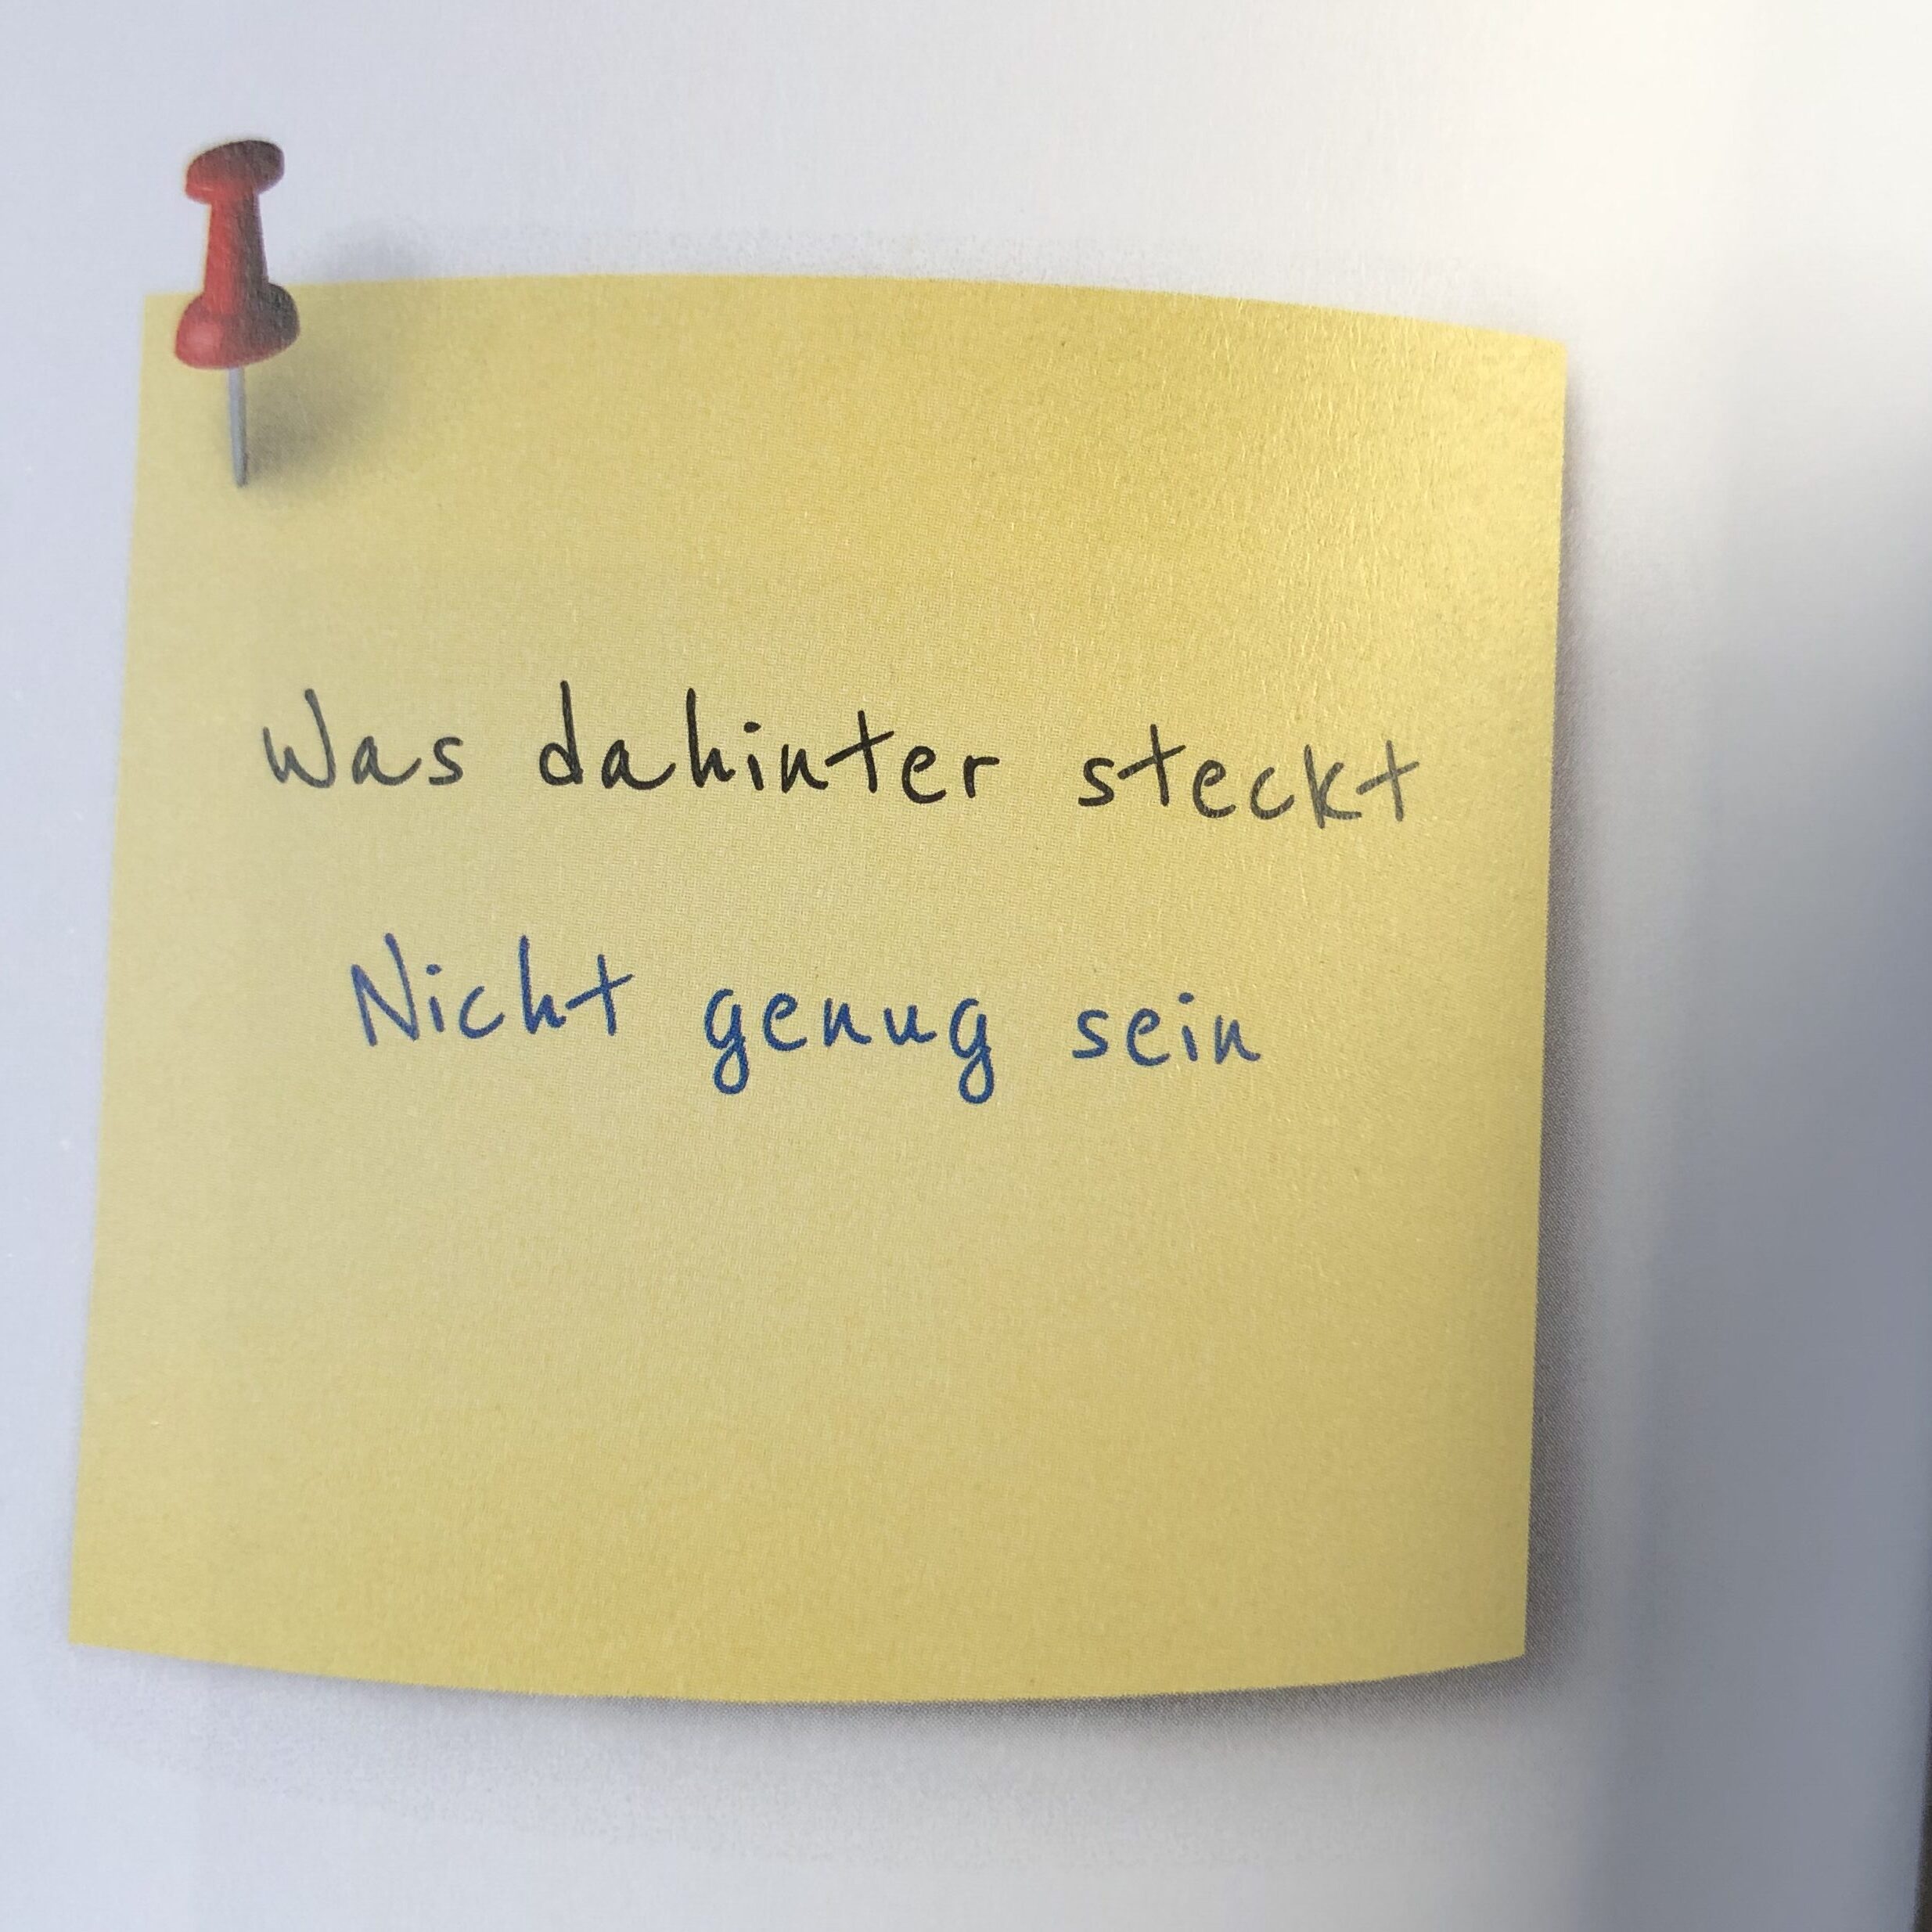 Was dahinter steckt
Nicht genug sein